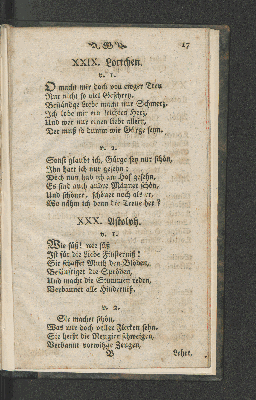 17
XXIX. Lottchen.
v. 1.
O macht mir doch von ewger Treu
Nur nicht so viel Geschrey.
Beständge Liebe macht nur Schmerz.
Ich lobe mir ein leichtes Herz,
Und wer nur einen liebt allein,
Der muß so dumm wie Görge seyn.
v. 2.
Sonst glaubt ich, Görge sey nur schön,
Ihn hatt ich nur gesehn:
Doch nun hab ich am Hof gesehn,
Es sind auch andre Männer schön,
Und schöner, schöner noch als er,
Wo nähm ich denn die Treue her?
XXX. Astolph.
v. 1.
Wie süß! wie süß
Ist für die Liebe Finsterniß!
Sie schaffet Muth den Blöden,
Besänftiget die Spröden,
Und macht die Stummen reden,
Verbannet alle Hinderniß.
v. 2.
Sie machet schön,
Was wir doch voller Flecken sehn.
Sie heißt die Neugier schweigen,
Verbannt vorwitzge Zeugen,
B
Lehrt.